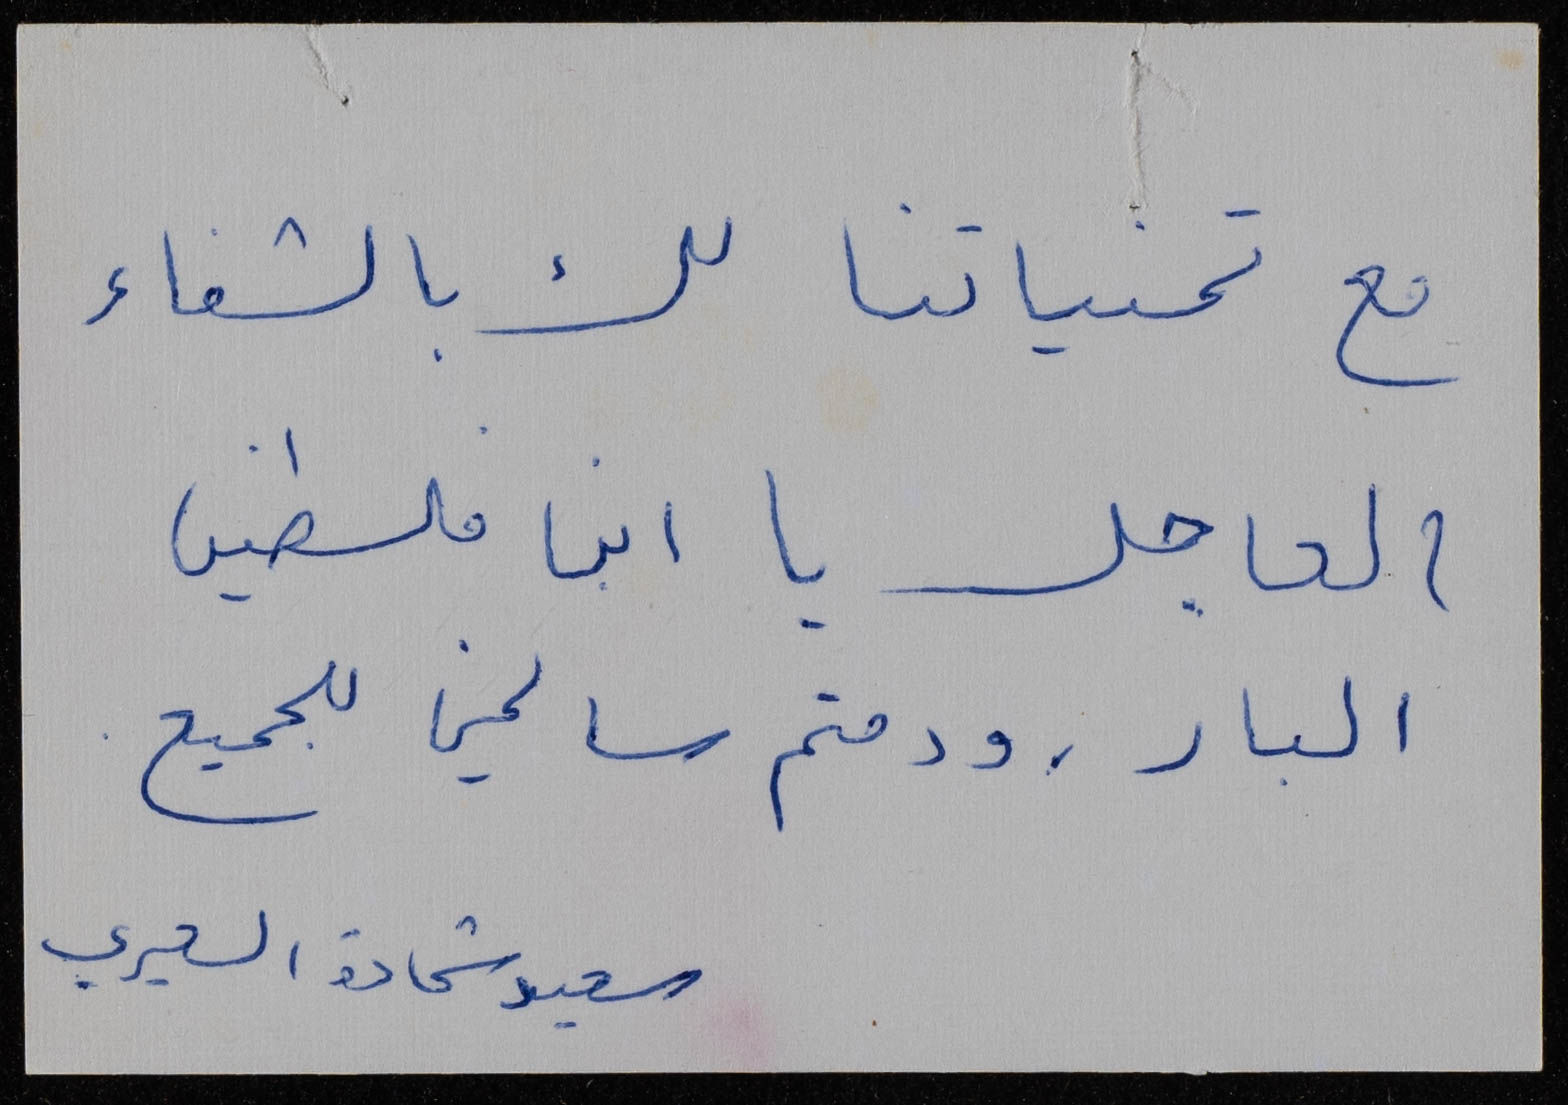 مع تمنياتنا لك بالشفاء
العاجل يا ابن فلسطين
البار، ودمتم سالمين للجميع.
سعيد شحادة